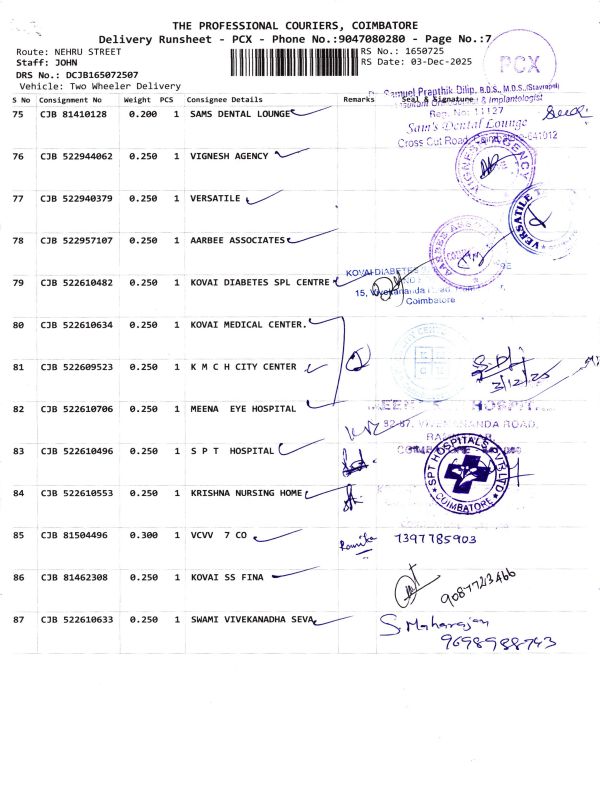 THE PROFESSIONAL COURIERS, COIMBATORE
Delivery Runsheet - PCX - Phone No.:9047080280 - Page No.:7
Route: NEHRU STREET
RS No.: 1650725
Staff: JOHN
RS Date: 03-Dec-2025
DRS No.: DCJB165072507
Vehicle: Two Wheeler Delivery
PCX
S No Consignment No Weight PCS Consignee Details Remarks Seal & Signature
75 CJB 81410128 0.200 1 SAMS DENTAL LOUNGE
Dilip, B.D.S., M.D.S.,
& Implantologist
Reg. No: 11127
Sam's Dental Lounge
Cross Cut Road, 641012
76 CJB 522944062 0.250 1 VIGNESH AGENCY
VIGNESH AGENCY
77 CJB 522940379 0.250 1 VERSATILE
VERSATILE
78 CJB 522957107 0.250 1 AARBEE ASSOCIATES
AARBEE
79 CJB 522610482 0.250 1 KOVAI DIABETES SPL CENTRE
KOVAI DIABETES
15, Vivekananda
Coimbatore
80 CJB 522610634 0.250 1 KOVAI MEDICAL CENTER.
81 CJB 522609523 0.250 1 K M C H CITY CENTER
3/12/25
82 CJB 522610706 0.250 1 MEENA EYE HOSPITAL
HOSPITAL
82-87, VIVEKANANDA ROAD,
83 CJB 522610496 0.250 1 S P T HOSPITAL
SPT HOSPITALS PVT LTD
COIMBATORE
84 CJB 522610553 0.250 1 KRISHNA NURSING HOME
85 CJB 81504496 0.300 1 VCVV 7 CO
7397785903
86 CJB 81462308 0.250 1 KOVAI SS FINA
9087723466
87 CJB 522610633 0.250 1 SWAMI VIVEKANADHA SEVA
S. Maharajan
9698988743